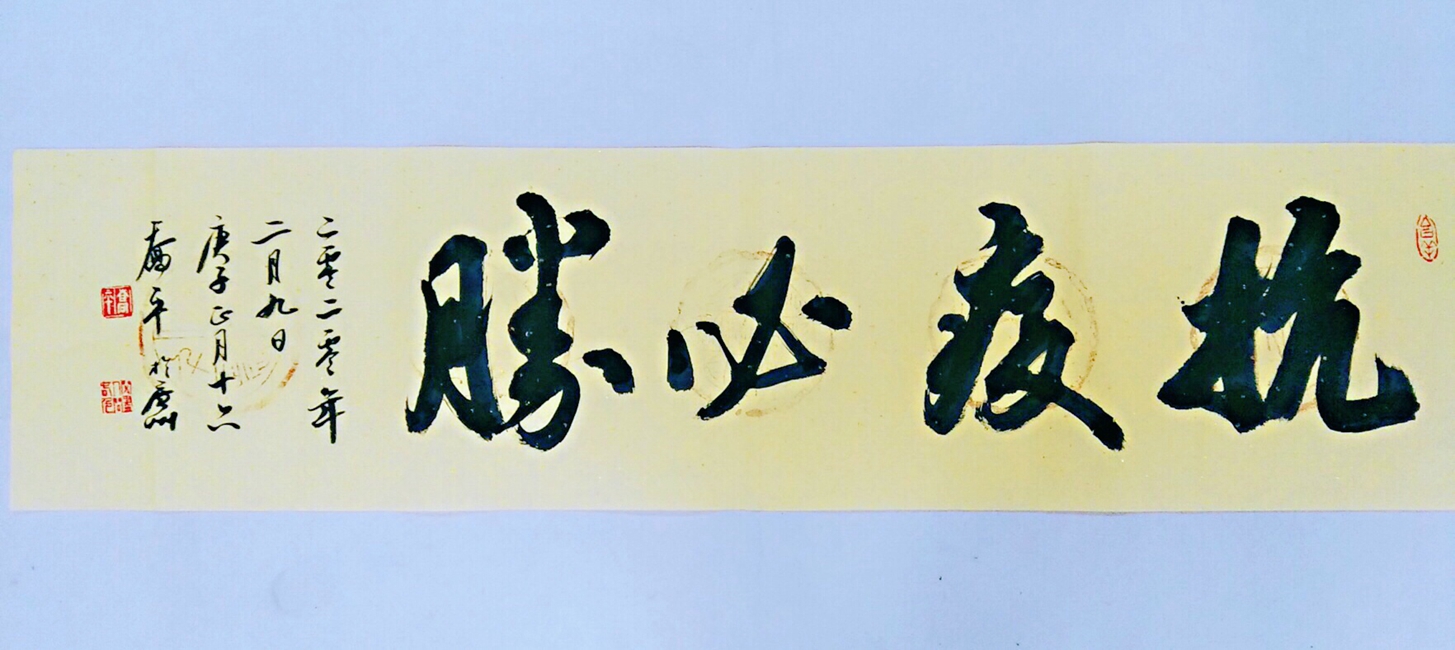 抗疫必勝
二零二零年
二月九日
庚子正月十六
平於